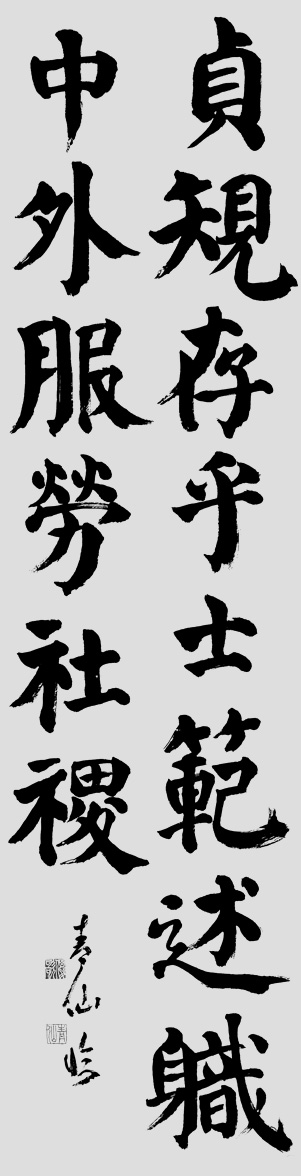 貞規存乎士範述軄
中外服勞社稷
青仙臨